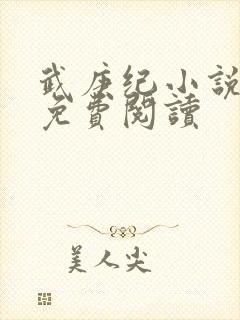 武庚纪小說
免費閱讀
美人尖